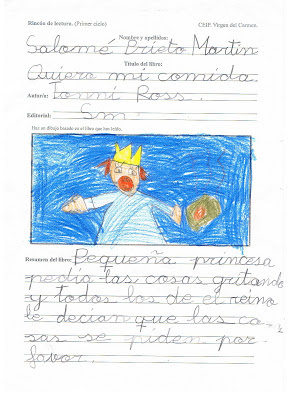 Rincón de lectura. (Primer ciclo) CEIP. Virgen del Carmen.
Nombre y apellidos:
Salomé Brieto Martin
Título del libro:
Quiero mi comida.
Autor/a: Tonni Ross.
Editorial: Sm
Haz un dibujo basado en el libro que has leído.
Resumen del libro: Pequeña princesa
pedía las cosas gritando
y todos los de el reino
le decían que las co-
sas se piden por
favor.